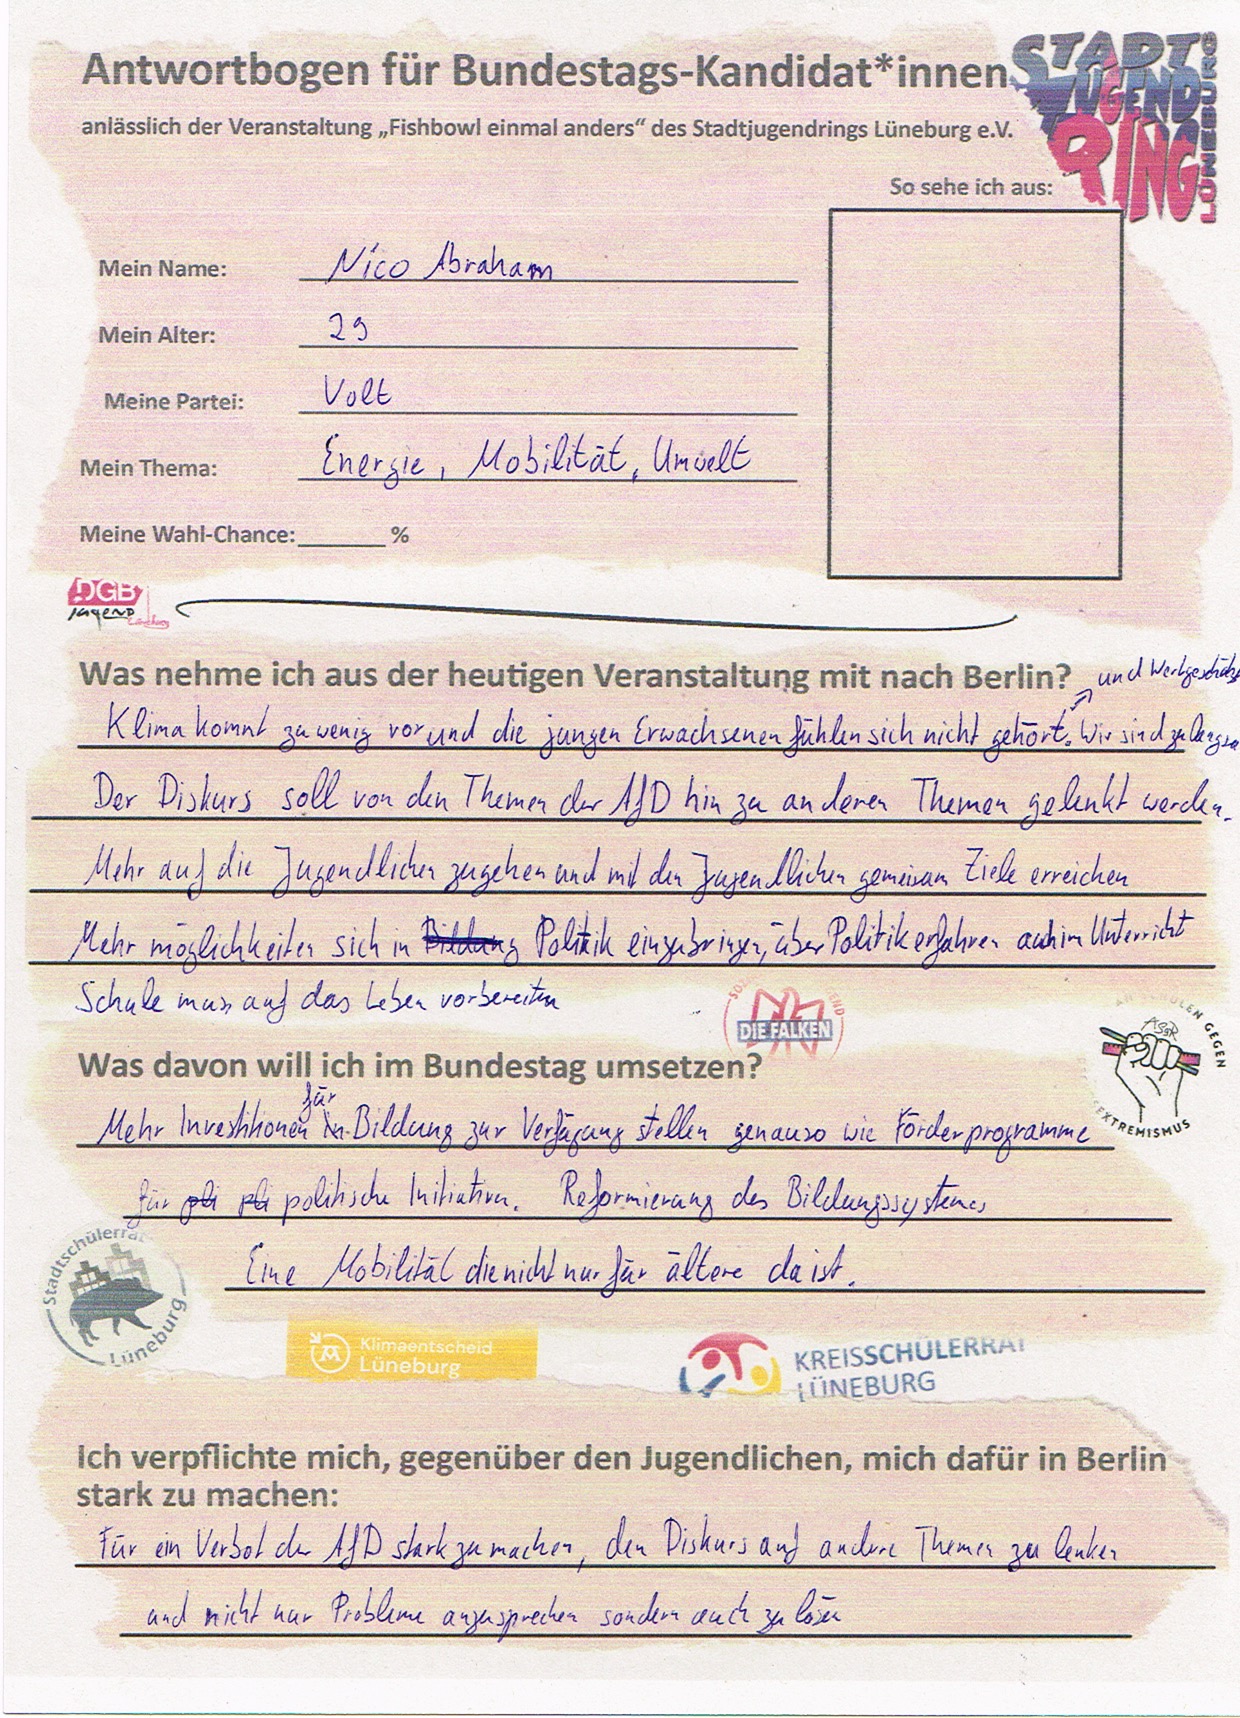 Antwortbogen für Bundestags-Kandidat*innen
anlässlich der Veranstaltung „Fishbowl einmal anders“ des Stadtjugendrings Lüneburg e.V.
STADT
JUGEND
RING
LÜNEBURG
So sehe ich aus:
Mein Name: Nico Abraham
Mein Alter: 29
Meine Partei: Volt
Mein Thema: Energie, Mobilität, Umwelt
Meine Wahl-Chance:______ %
DGB
Jugend
Lüneburg
Was nehme ich aus der heutigen Veranstaltung mit nach Berlin?
und Wertgeschätzt
Klima kommt zu wenig vor und die jungen Erwachsenen fühlen sich nicht gehört. Wir sind zu langsam
Der Diskurs soll von den Themen der AfD hin zu anderen Themen gelenkt werden.
Mehr auf die Jugendlichen zugehen und mit den Jugendlichen gemeinsam Ziele erreichen
Mehr möglichkeiten sich in Bildung Politik einzubringen, über Politik erfahren auch im Unterricht
Schule muss auf das Leben vorbereiten
DIE FALKEN
AN SCHULEN GEGEN
ASgR
EXTREMISMUS
Was davon will ich im Bundestag umsetzen?
für
Mehr Investitionen in Bildung zur Verfügung stellen genauso wie Förderprogramme
für pli pli politische Initiativen. Reformierung des Bildungssystemes
Eine Mobilität die nicht nur für ältere da ist.
Stadtschülerrat
Lüneburg
Klimaentscheid
Lüneburg
KREISSCHÜLERRAT
LÜNEBURG
Ich verpflichte mich, gegenüber den Jugendlichen, mich dafür in Berlin
stark zu machen:
Für ein Verbot der AfD stark zu machen, den Diskurs auf andere Themen zu lenken
und nicht nur Probleme anzusprechen sondern auch zu lösen